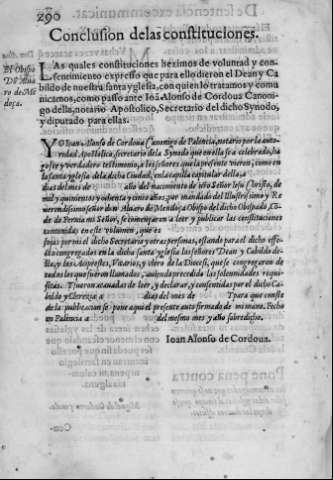 290
Conclusion delas constituciones.
El Obispo
Dõ Alua
ro de Mẽ
doça.
LAs quales constituciones hezimos de voluntad y con-
sentimiento expresso que para ello dieron el Dean y Ca
bildo de nuestra santa yglesia, con quien lo tratamos y comu
nicamos, como passo ante Ioã Alonso de Cordoua Canoni-
go della, notario Apostolico, Secretario del dicho Synodo,
y diputado para ellas.
YO Ioan Alonso de Cordoua Canonigo de Palencia, notario por la auto-
ridad Apostolica, secretario dela Synodo que en ella se a celebrado, ha
go fee y verdadero testimonio, a los señores que la presente vieren, como en
la santa yglesia dela dicha Ciudad, en la capilla capitular della, a
dias del mes de año del nacimiento de nro Señor Iesu Christo, de
mil y quinientos y ochenta y cinco años, por mandado del Illustrissimo y Re
uerendissimo señor don Aluaro de Mendoça Obispo del dicho Obispado, Cõ-
de de Pernia mi Señor, se començaron a leer y publicar las constituciones
contenidas en este volumen, que es
fojas por mi el dicho Secretario y otras personas, estando para el dicho effe-
cto congregados en la dicha santa yglesia los señores Dean y Cabildo de-
lla, y los Arciprestes, Vicarios, y clero de la Diocesi, que se congregaron de
todas las que fueron llamados, auiendo precedido las solennidades requi-
sitas. Fueron acauadas de leer, y declarar, y consentidas por el dicho Ca-
bildo y Clerezia a dias del mes de Y para que conste
de la publicacion se pone aqui el presente auto firmado de mi mano. Fecho
en Palencia a del mesmo mes y año sobredicho.
Ioan Alonso de Cordoua.